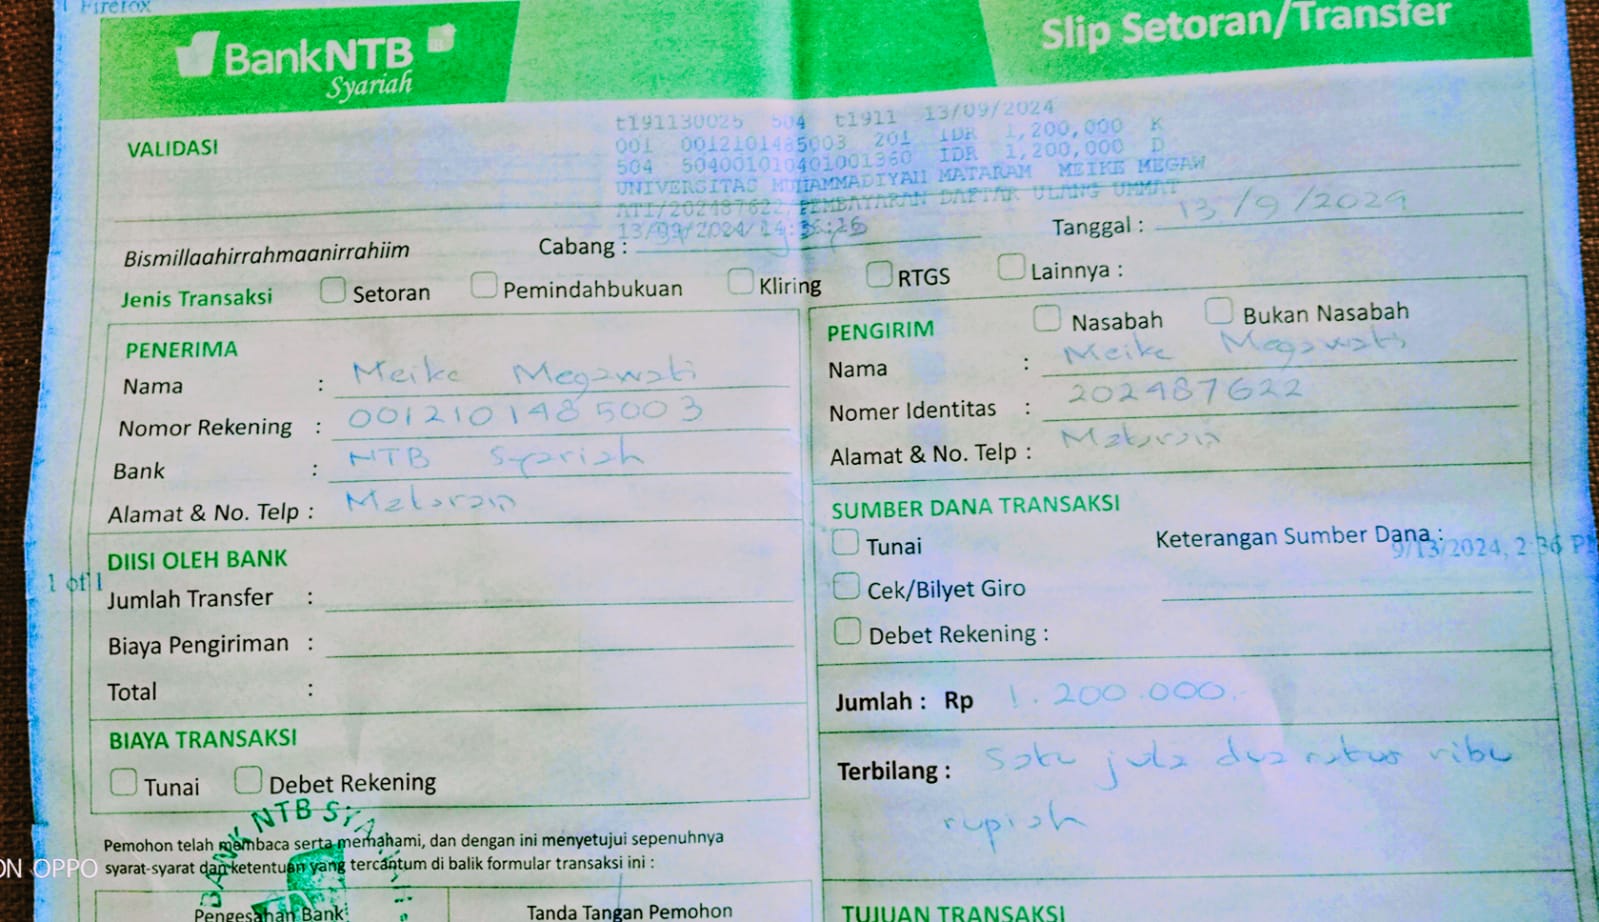 Firefox
BankNTB
Syariah
Slip Setoran/Transfer
VALIDASI
t191130025 504 t1911 13/09/2024
001 0012101485003 201 IDR 1,200,000 K
504 504001010401001360 IDR 1,200,000 D
UNIVERSITAS MUHAMMADIYAH MATARAM MEIKE MEGAW
ATI/202487622,PEMBAYARAN DAFTAR ULANG UMMAT
13/09/2024/14:36:26
Bismillaahirrahmaanirrahiim
Cabang :
Tanggal : 13/9/2024
Jenis Transaksi Setoran Pemindahbukuan Kliring RTGS Lainnya :
PENERIMA
Nama : Meike Megawati
Nomor Rekening : 0012101485003
Bank : NTB Syariah
Alamat & No. Telp : Mataram
PENGIRIM Nasabah Bukan Nasabah
Nama : Meike Megawati
Nomer Identitas : 202487622
Alamat & No. Telp : Mataram
DIISI OLEH BANK
1 of 1
Jumlah Transfer :
Biaya Pengiriman :
Total :
SUMBER DANA TRANSAKSI
Tunai
Keterangan Sumber Dana :
9/13/2024, 2:36 P
Cek/Bilyet Giro
Debet Rekening :
BIAYA TRANSAKSI
Tunai Debet Rekening
Jumlah : Rp 1.200.000.
Terbilang : Satu juta dua ratus ribu
rupiah
BANK NTB SYA
Pemohon telah membaca serta memahami, dan dengan ini menyetujui sepenuhnya
syarat-syarat dan ketentuan yang tercantum di balik formular transaksi ini :
ON OPPO
Pengesahan Bank
Tanda Tangan Pemohon
TUJUAN TRANSAKSI